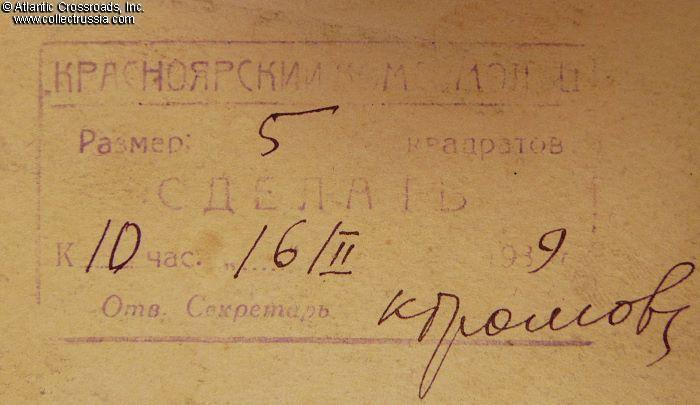 © Atlantic Crossroads, Inc.
www.collectrussia.com
„КРАСНОЯРСКИЙ КОМСОМОЛЕЦ
Размер: 5 квадратов
СДЕЛАТЬ
К 10 час. „16/II 1939 г.
Отв. Секретарь